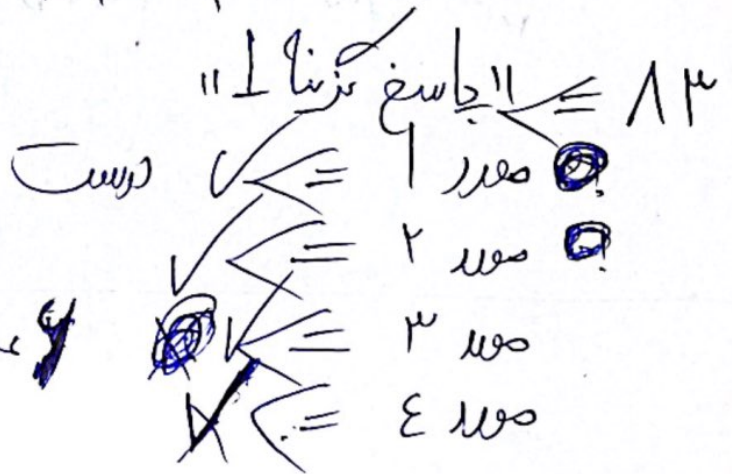 ۸۳ ⇐ "پاسخ گزینه 1"
مورد ۱ ⇐ ✓ درست
مورد ۲ ⇐ ✓
مورد ۳ ⇐ ✓
مورد ٤ ⇐